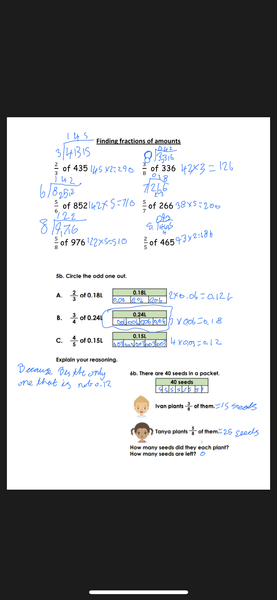 Finding fractions of amounts
1 4 5
3 4 13 15
2/3 of 435 145x2=290
3/8 of 336 42x3=126
1 4 2
5/6 of 852 142x5=710
5/7 of 266 38x5=200
1 2 2
5/8 of 976 122x5=510
2/5 of 465 93x2=186
5b. Circle the odd one out.
A. 2/3 of 0.18L 0.18L
B. 3/4 of 0.24L 0.24L
C. 4/5 of 0.15L 0.15L 4x0.03=0.12
Explain your reasoning.
Because B is the only
one that is not 0.12
6b. There are 40 seeds in a packet.
40 seeds
5 5 5 5 5 5 5 5
Ivan plants 3/8 of them. =15 seeds
Tanya plants 5/8 of them. =25 seeds
How many seeds did they each plant?
How many seeds are left? 0